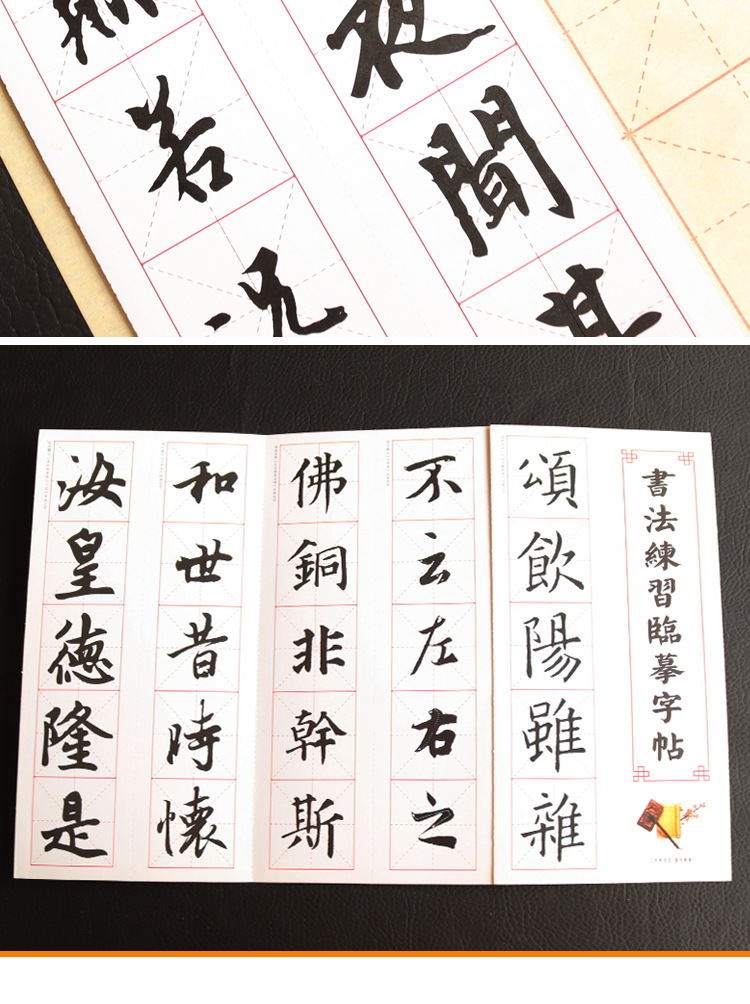 夜聞其
若況
書法練習臨摹字帖
頌飲陽雖雜
不云左右之
佛銅非幹斯
和世昔時懷
汝皇德隆是